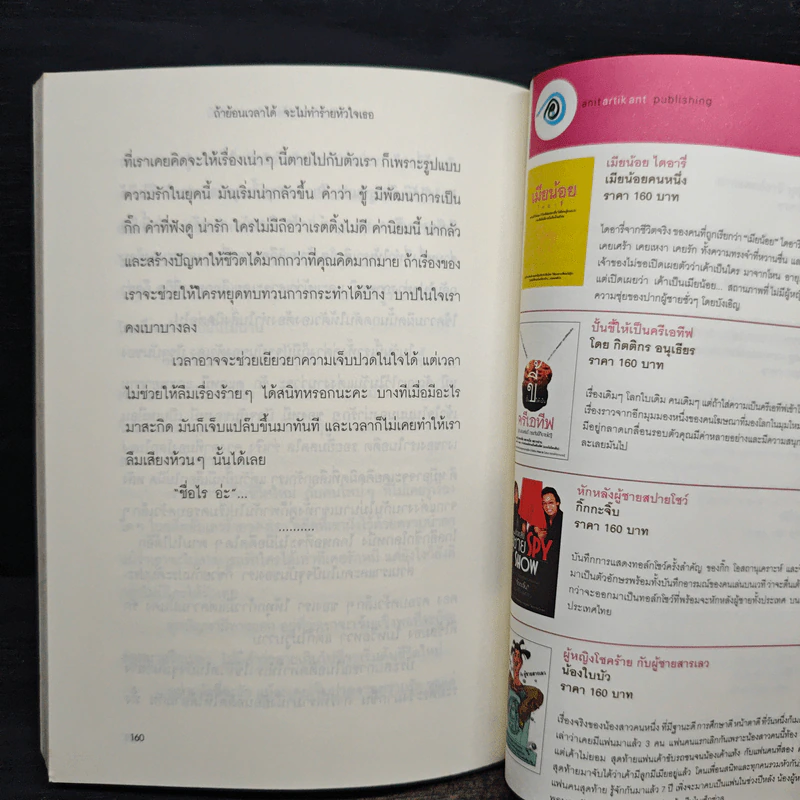 ถ้าย้อนเวลาได้ จะไม่ทำร้ายหัวใจเธอ
ที่เราเคยคิดจะให้เรื่องเน่าๆ นี้ตายไปกับตัวเรา ก็เพราะรูปแบบ
ความรักในยุคนี้ มันเริ่มน่ากลัวขึ้น คำว่า ชู้ มีพัฒนาการเป็น
กิ๊ก คำที่ฟังดู น่ารัก ใครไม่มีถือว่าเรตติ้งไม่ดี ค่านิยมนี้ น่ากลัว
และสร้างปัญหาให้ชีวิตได้มากกว่าที่คุณคิดมากมาย ถ้าเรื่องของ
เราจะช่วยให้ใครหยุดทบทวนการกระทำได้บ้าง บาปในใจเรา
คงเบาบางลง
เวลาอาจจะช่วยเยียวยาความเจ็บปวดในใจได้ แต่เวลา
ไม่ช่วยให้ลืมเรื่องร้ายๆ ได้สนิทหรอกนะคะ บางทีเมื่อมีอะไร
มาสะกิด มันก็เจ็บแปล๊บขึ้นมาทันที และเวลาก็ไม่เคยทำให้เรา
ลืมเสียงห้วนๆ นั้นได้เลย
"ชื่อไร อ่ะ"...
..........
160
anitartikant publishing
เมียน้อย
เมียน้อย ไดอารี่
เมียน้อยคนหนึ่ง
ราคา 160 บาท
ไดอารี่จากชีวิตจริง ของคนที่ถูกเรียกว่า "เมียน้อย" ไดอารี่
เคยเศร้า เคยเหงา เคยรัก ทั้งความทรงจำที่หวานชื่น และ
เจ้าของไม่ขอเปิดเผยตัวว่าเค้าเป็นใคร มาจากไหน อายุ
แต่เปิดเผยว่า เค้าเป็นเมียน้อย... สถานภาพที่ ไม่มีผู้หญิ
ความซุ่ยของปากผู้ชายชั่วๆ โดยบังเอิญ
ขี้
ครีเอทีฟ
ปั้นขี้ให้เป็นครีเอทีฟ
โดย กิตติกร อนุเธียร
ราคา 160 บาท
เรื่องเดิมๆ โลกใบเดิม คนเดิมๆ แต่ถ้าใส่ความเป็นครีเอทีฟเข้าไ
เรื่องราวจากอีกมุมมองหนึ่งของคนโฆษณาที่มองโลกในมุมใหม่
มีอยู่กลาดเกลื่อนรอบตัวคุณมีค่าหลายอย่างและมีความสนุก
ละเลยมันไป
SPY
SHOW
หักหลังผู้ชายสปายโชว์
กิ๊กกะจิ๊บ
ราคา 160 บาท
บันทึกการแสดงทอล์กโชว์ครั้งสำคัญ ของกิ๊ก โอสถานุเคราะห์ และ
มาเป็นตัวอักษรพร้อมทั้งบันทึกอารมณ์ของคนเล่นบนเวที ว่าจะตื่นเต้
กว่าจะออกมาเป็นทอล์กโชว์ที่พร้อมจะหักหลังผู้ชายทั้งประเทศ บน
ประเทศไทย
ผู้หญิงโชคร้าย กับผู้ชายสารเลว
น้องใบบัว
ราคา 160 บาท
เรื่องจริงของน้องสาวคนหนึ่ง ที่มีฐานะดี การศึกษาดี หน้าตาดี ที่วันหนึ่งก็
เล่าว่าเคยมีแฟนมาแล้ว 3 คน แฟนคนแรกเลิกกันเพราะน้องสาวคนนี้ท้อง
แต่เค้าไม่ยอม สุดท้ายแฟนเค้าขับรถชนจนน้องเค้าแท้ง กับแฟนที่สอง
สุดท้ายมาจับได้ว่าเค้ามีลูกมีเมียอยู่แล้ว โดนเพื่อนสนิทและทุกคนรวมหัวกัน
แฟนคนสุดท้าย รู้จักกันมาแล้ว 7 ปี เพิ่งจะมาคบเป็นแฟนในช่วงปีหลัง น้อง